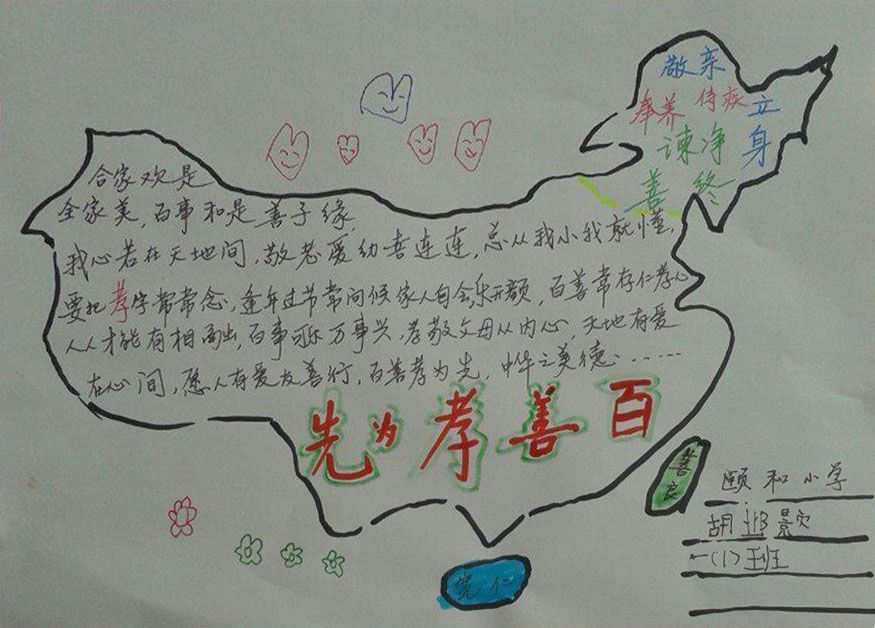 敬亲
奉养 侍疾 立
谏净 身
善终
合家欢是
全家美,百事和是善子缘,
我心若在天地间,敬老爱幼喜连连,总从我小我就懂,
要把孝字常常念,逢年过节常问候家人自会乐开颜,百善常存仁孝心
人人才能有相, 百事 万事兴,孝敬父母从内心,天地有爱
在心间,愿人有爱友善行,百善孝为先,中华之美德……
先为孝善百
善良
宽仁
颐和小学
胡
一(1)班